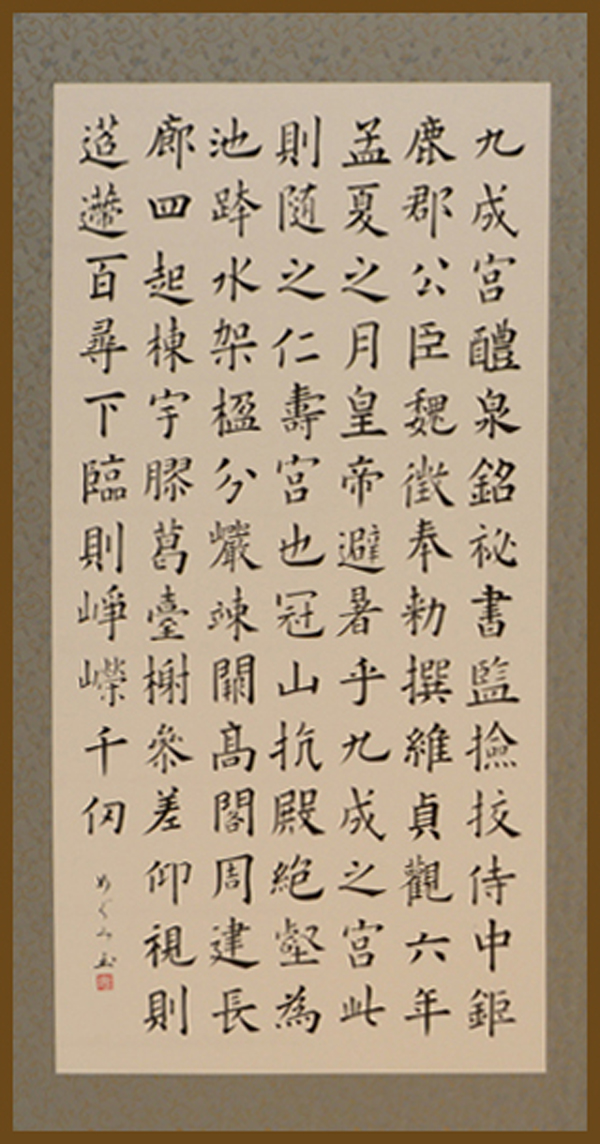 九成宮醴泉銘祕書監撿挍侍中鉅
鹿郡公臣魏徵奉勅撰維貞觀六年
孟夏之月皇帝避暑乎九成之宮此
則随之仁壽宮也冠山抗殿絶壑為
池跨水架楹分巖竦闕髙閣周建長
廊四起棟宇膠葛臺榭參差仰視則
迢遰百尋下臨則崢嶸千仞
めぐみ